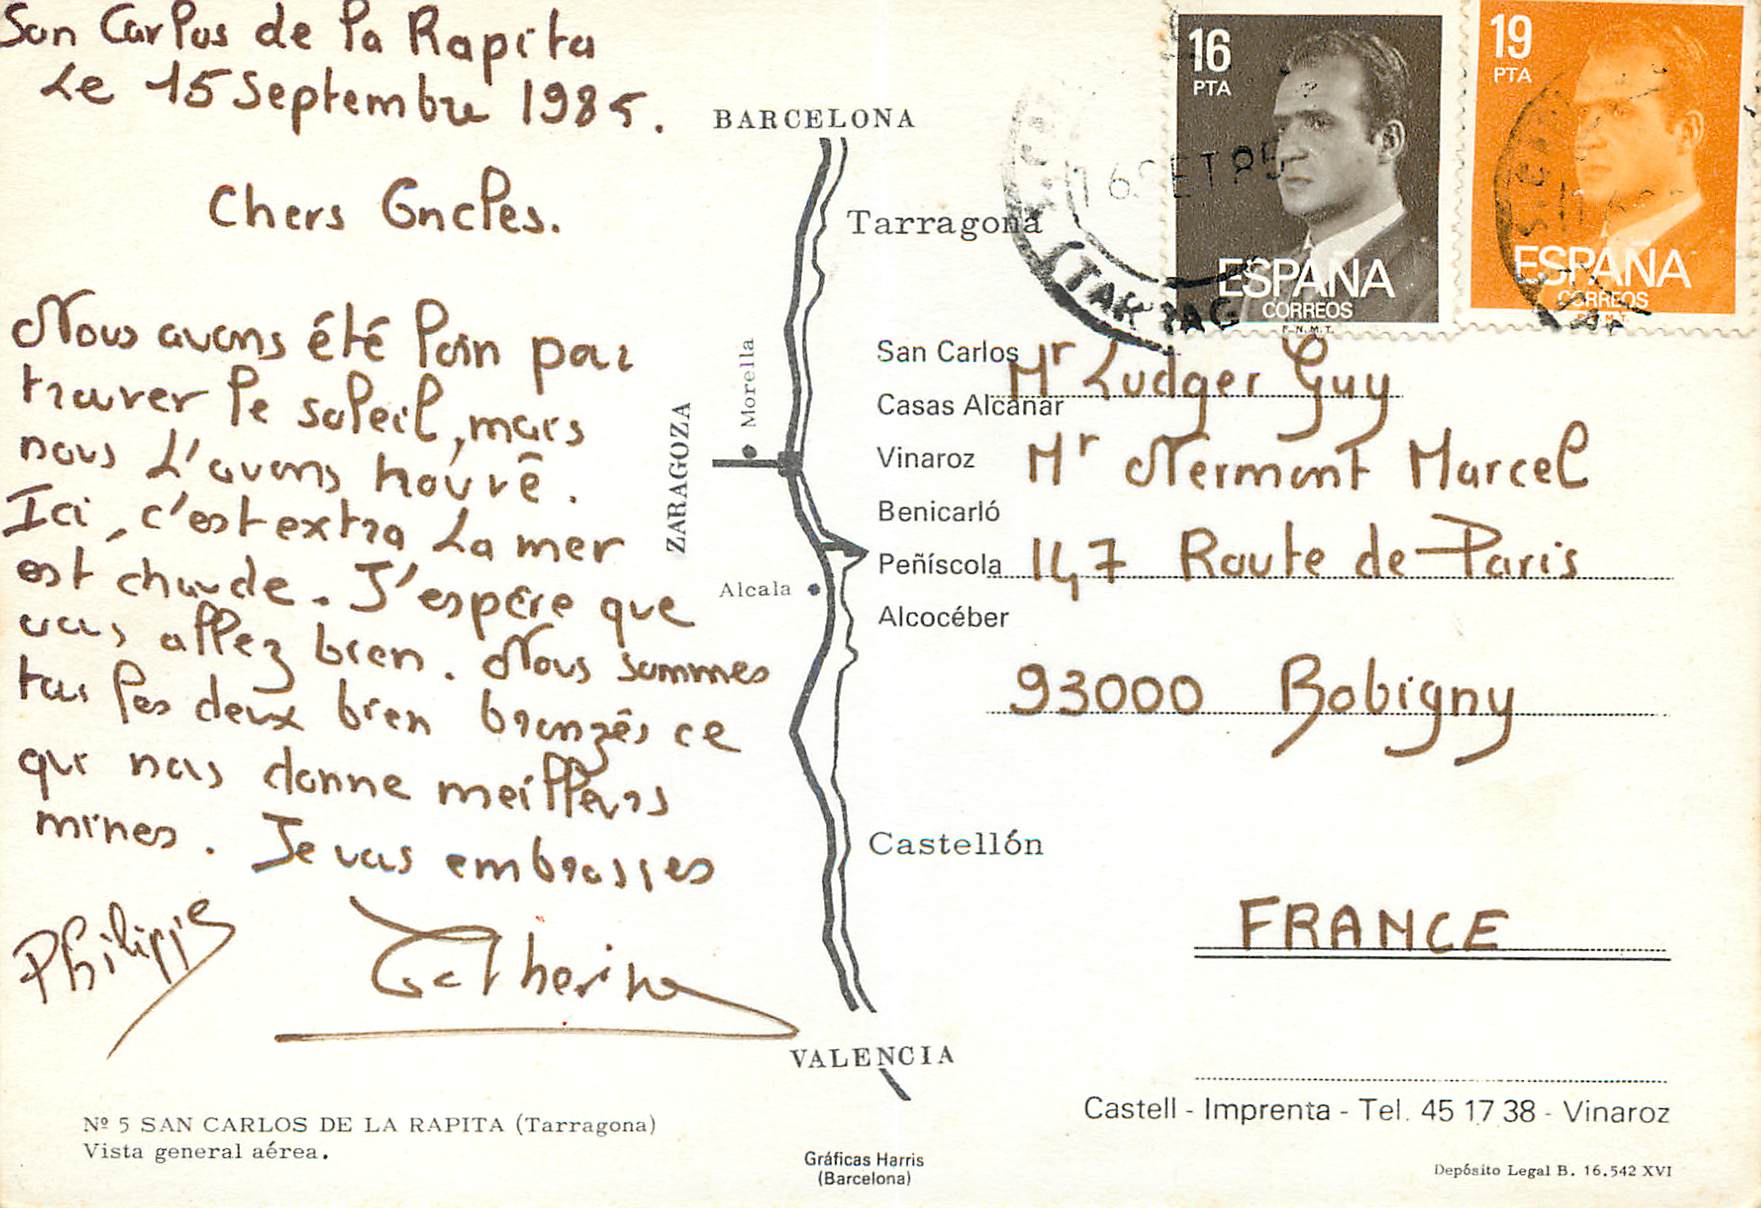 San Carlos de la Rapita
Le 15 Septembre 1985.
Chers Oncles.
Nous avons été loin pour
trouver le soleil, mais
nous L'avons trouvé.
Ici, c'est extra La mer
est chaude. J'espère que
vous allez bien. Nous sommes
tous les deux bien bronzés ce
qui nous donne meilleurs
mines. Je vous embrasses
Philippe
Catherine
Nº 5 SAN CARLOS DE LA RAPITA (Tarragona)
Vista general aérea.
BARCELONA
Tarragona
Morella
ZARAGOZA
San Carlos
Casas Alcanar
Vinaroz
Benicarló
Peñíscola
Alcocéber
Alcala
Castellón
VALENCIA
Gráficas Harris
(Barcelona)
16
PTA
ESPAÑA
CORREOS
F.N.M.T.
19
PTA
ESPAÑA
CORREOS
16 SET 85
(TARRAG
Mr Ludger Guy
Mr Nermont Marcel
147 Route de Paris
93000 Bobigny
FRANCE
Castell - Imprenta - Tel. 45 17 38 - Vinaroz
Depósito Legal B. 16.542 XVI